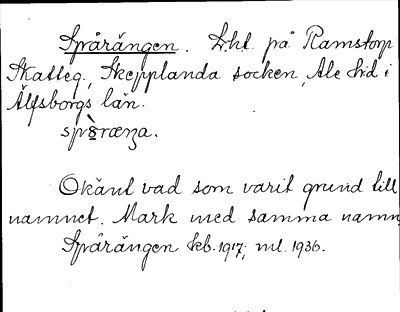 Spårängen. Lht. på Ramstorp
Skatteg., Skepplanda socken, Ale hd i
Älfsborgs län.
Okänt vad som varit grund till
namnet. Mark med samma namn,
Spårängen kb. 1917; ml. 1936.